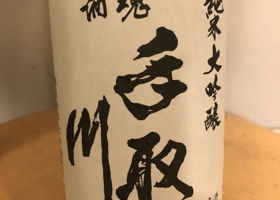 純米大吟醸
手取
川
魂